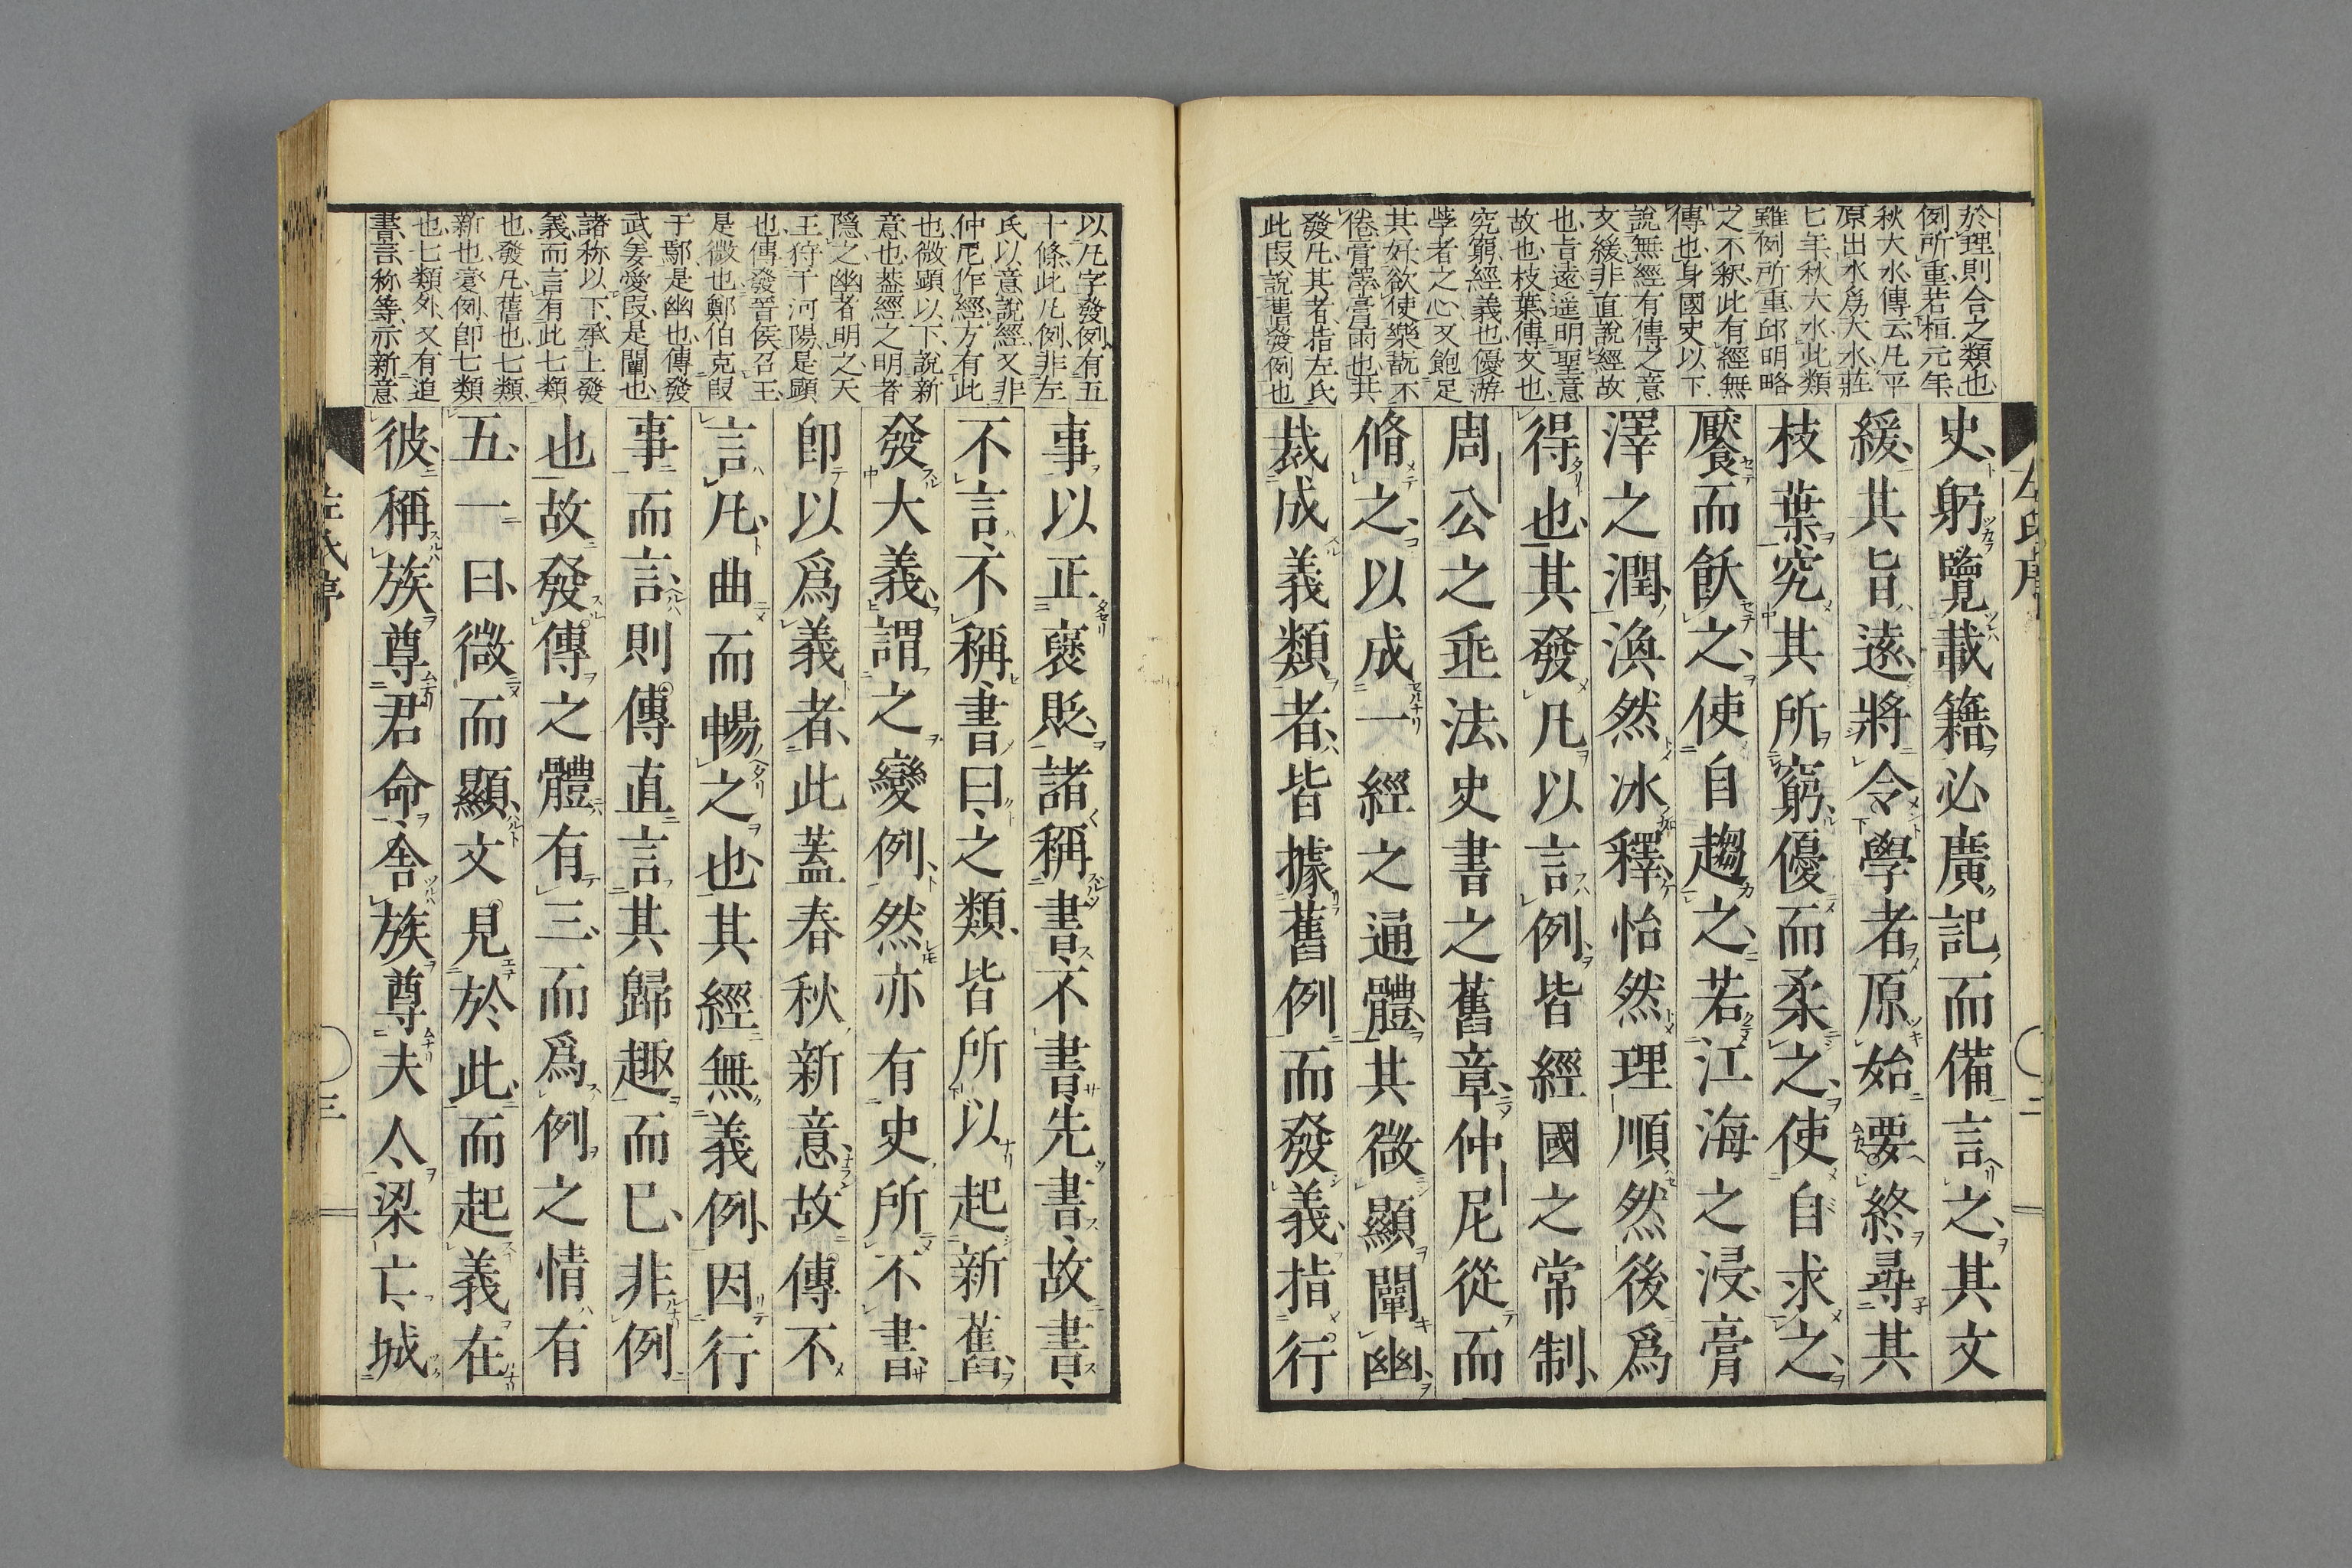 左氏序
二
於理則合之類也
例所重若桓元年
秋大水傳云凡平
原出水爲大水莊
七年秋大水此類
雖例所重邱明略
之不釈此有經無
傳也身國史以下
說無經有傳之意
文緩非直說經故
也旨遠遥明聖意
故也枝葉傳文也
究窮經義也優游
學者之心又飽足
其好欲使樂翫不
倦膏澤膏雨也其
發凡其者指左氏
此叚說舊發例也
史躬覽載籍必廣記而備言之其文
緩其旨遠將令學者原始要終尋其
枝葉究其所窮優而柔之使自求之
饜而飫之使自趨之若江海之浸膏
澤之潤渙然冰釋怡然理順然後爲
得也其發凡以言例皆經國之常制
周公之垂法史書之舊章仲尼從而
脩之以成一經之通體其微顯闡幽
裁成義類者皆據舊例而發義指行
以凡字發例有五
十條此凡例非左
氏以意說經又非
仲尼作經方有此
也微顕以下說新
意也蓋經之明者
隠之幽者明之天
王狩于河陽是顕
也傳發晉侯召王
是微也鄭伯克叚
于鄢是幽也傳發
武姜愛叚是闡也
諸称以下承上發
義而言有此七類
也發凡舊也七類
新也変例即七類
也七類外又有追
書言称等示新意
事以正褒貶諸稱書不書先書故書
不言不稱書曰之類皆所以起新舊
發大義謂之變例然亦有史所不書
即以爲義者此蓋春秋新意故傳不
言凡曲而暢之也其經無義例因行
事而言則傳直言其歸趣而已非例
也故發傳之體有三而爲例之情有
五一曰微而顯文見於此而起義在
彼稱族尊君命舍族尊夫人梁亡城
三